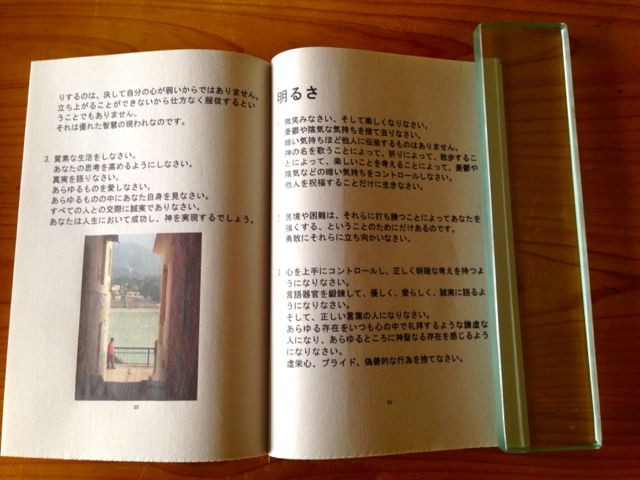 りするのは、決して自分の心が弱いからではありません。
立ち上がることができないから仕方なく服従するとい
うことでもありません。
それは優れた智慧の現われなのです。
3. 質素な生活をしなさい。
あなたの思考を高めるようにしなさい。
真実を語りなさい。
あらゆるものを愛しなさい。
あらゆるものの中にあなた自身を見なさい。
すべての人との交際に誠実でありなさい。
あなたは人生において成功し、神を実現するでしょう。
23
明るさ
1. 微笑みなさい、そして楽しくなりなさい。
憂鬱や陰気な気持ちを捨て去りなさい。
暗い気持ちほど他人に伝染するものはありません。
神の名を歌うことによって、祈りによって、散歩するこ
とによって、楽しいことを考えることによって、憂鬱や
陰気などの暗い気持ちをコントロールしなさい。
他人を祝福することだけに生きなさい。
2. 苦境や困難は、それらに打ち勝つことによってあなたを
強くする、ということのためにだけあるのです。
勇敢にそれらに立ち向かいなさい。
3. 心を上手にコントロールし、正しく明確な考えを持つよ
うになりなさい。
言語器官を鍛錬して、優しく、愛らしく、誠実に語るよ
うになりなさい。
そして、正しい言葉の人になりなさい。
あらゆる存在をいつも心の中で礼拝するような謙虚な
人になり、あらゆるところに神聖なる存在を感じるよう
になりなさい。
虚栄心、プライド、偽善的な行為を捨てなさい。
24